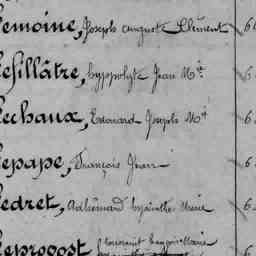 Lemoine, Joseph auguste Clément 6
Lefillâtre, hyppolyte Jean M.ie 6
Lechaux, Edouard Joseph M.ie 6
Lepape, François Jean 6
Ledret, Adhémard hyacinthe Marie 6
Leprovost, Marie